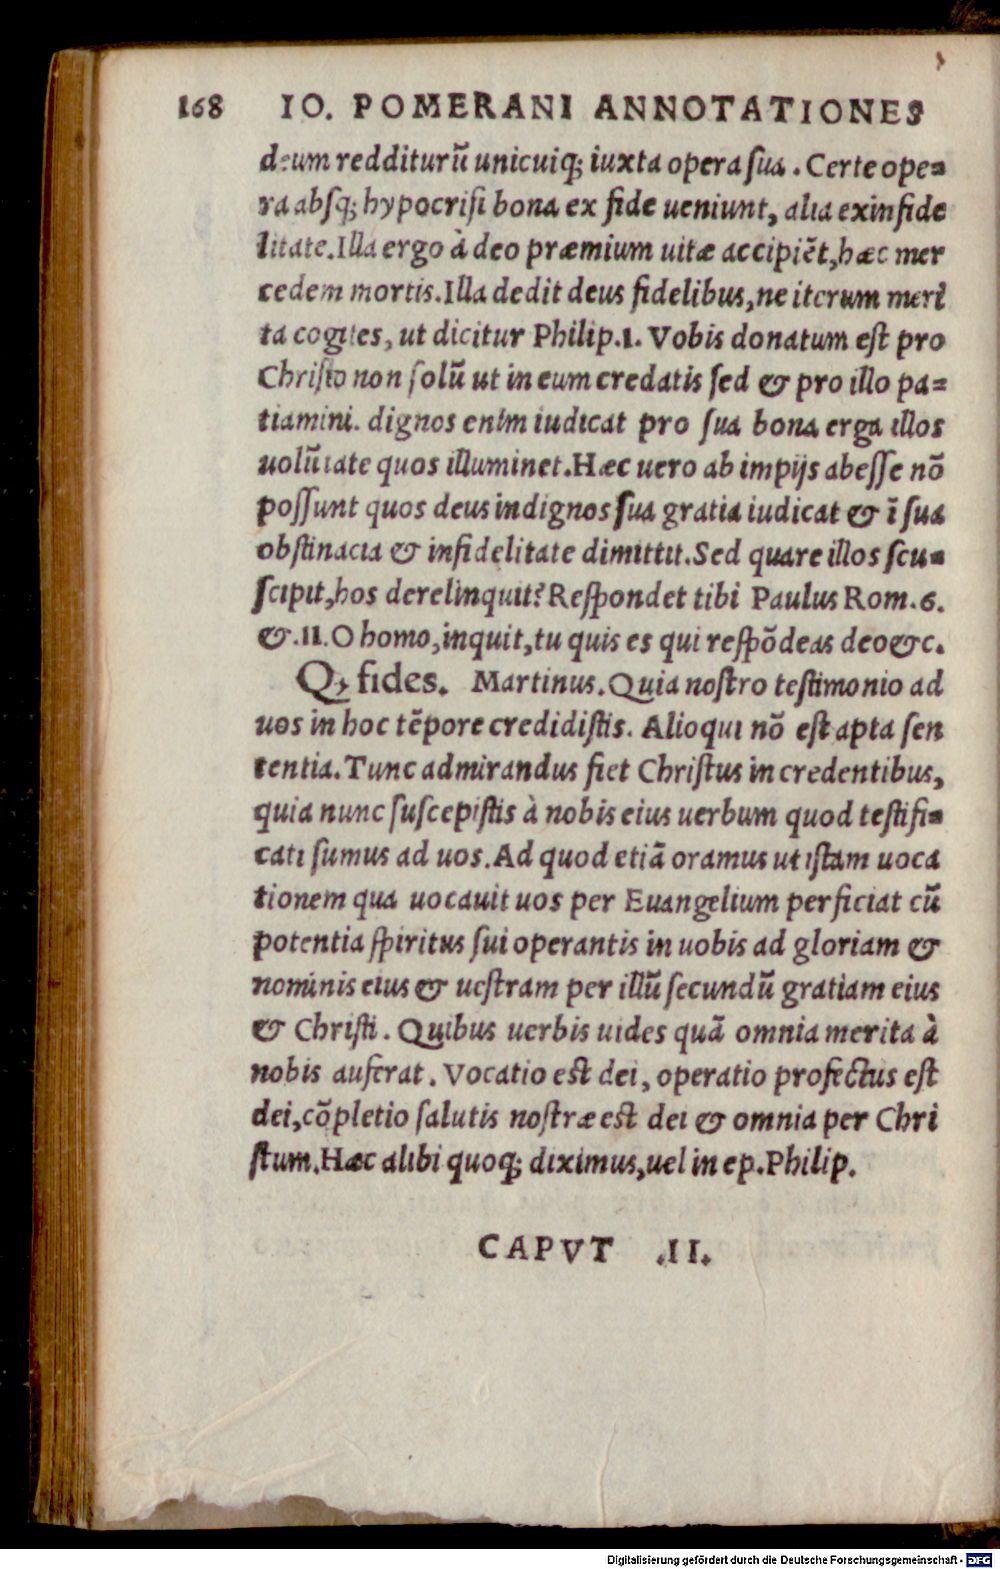 168 IO. POMERANI ANNOTATIONES
deum redditurū unicuiq; iuxta opera sua. Certe ope=
ra absq; hypocrisi bona ex fide ueniunt, alia ex infide
litate. Illa ergo à deo præmium uitæ accipiēt, hæc mer
cedem mortis. Illa dedit deus fidelibus, ne iterum meri
ta cogites, ut dicitur Philip.1. Vobis donatum est pro
Christo non solū ut in eum credatis sed & pro illo pa=
tiamini. dignos enim iudicat pro sua bona erga illos
uolūtate quos illuminet. Hæc uero ab impijs abesse nō
possunt quos deus indignos sua gratia iudicat & ī sua
obstinacia & infidelitate dimittit. Sed quare illos scu=
scipit, hos derelinquit? Respondet tibi Paulus Rom.6.
&.11. O homo, inquit, tu quis es qui respōdeas deo &c.
Q; fides. Martinus. Quia nostro testimonio ad
uos in hoc tēpore credidistis. Alioqui nō est apta sen
tentia. Tunc admirandus fiet Christus in credentibus,
quia nunc suscepistis à nobis eius uerbum quod testifi=
cati sumus ad uos. Ad quod etiā oramus ut istam uoca
tionem qua uocauit uos per Euangelium perficiat cū
potentia spiritus sui operantis in uobis ad gloriam &
nominis eius & uestram per illū secundū gratiam eius
& Christi. Quibus uerbis uides quā omnia merita à
nobis auferat. Vocatio est dei, operatio profectus est
dei, cōpletio salutis nostræ est dei & omnia per Chri
stum. Hæc alibi quoq; diximus, uel in ep. Philip.
CAPVT .II.
Digitalisierung gefördert durch die Deutsche Forschungsgemeinschaft - DFG